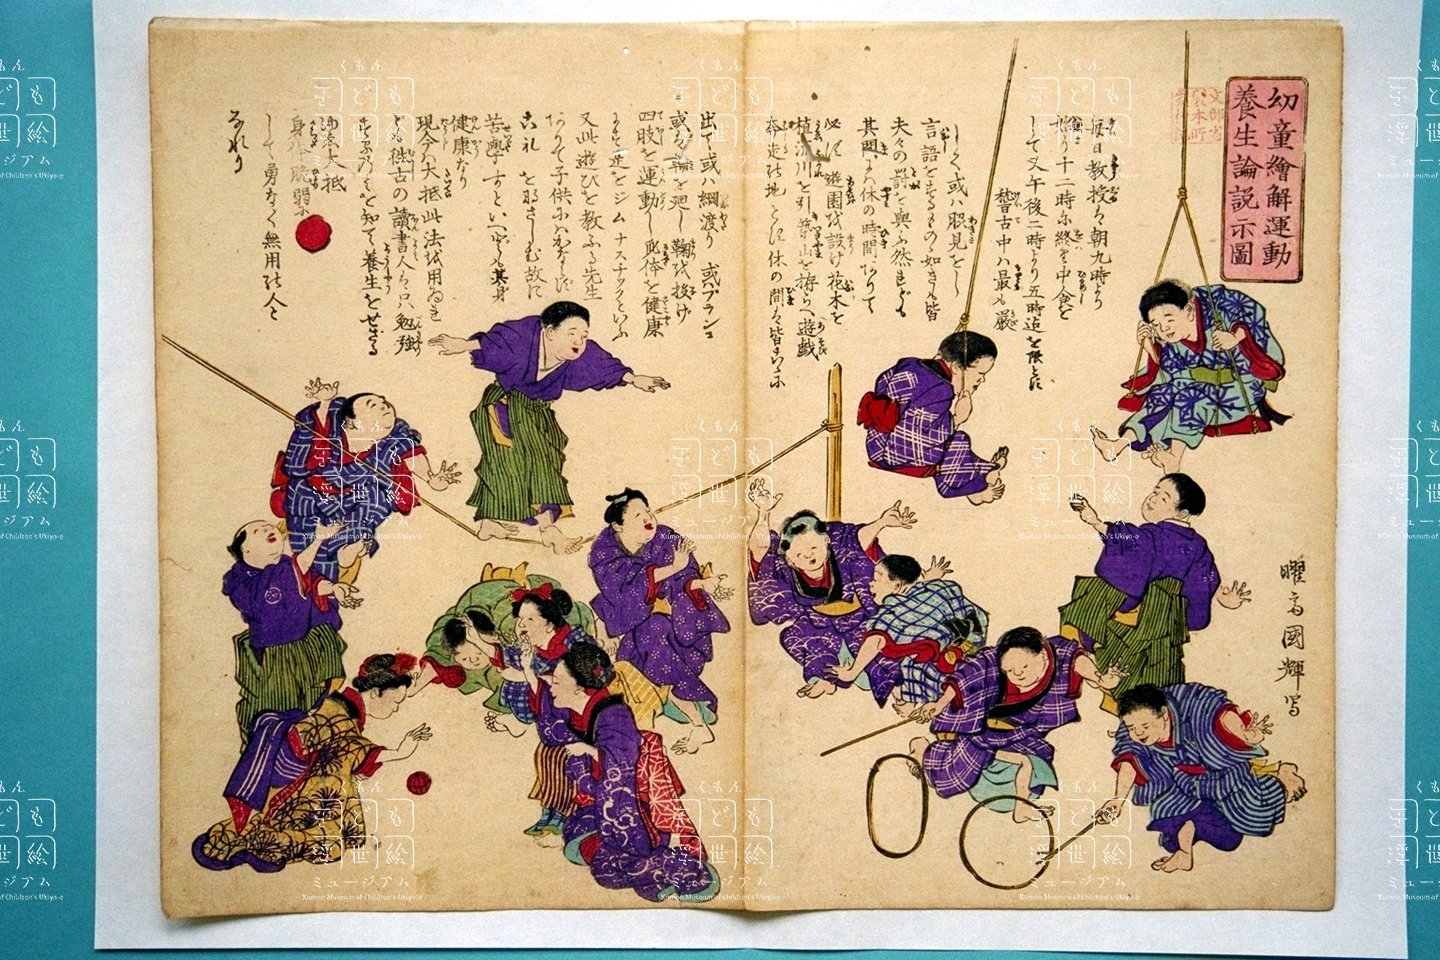 幼童繪解運動
養生論説示圖
文部省
製本所
毎日教授は朝九時より
十二時に終り中食を
して又午後二時より五時迄を限とす
稽古中ハ最も嚴
しく或ハ脇見をし
言語をするものゝ如きも皆
夫々の罰を與ふ然れども
其間に休の時間ありて
必す遊園を設け花木を
植河川を引築山を拵らへ遊戯
奔走の地とす休の間ハ皆こゝに
出て或ハ綱渡り或ハブランコ
或ハ輪を廻し鞠を投け
四肢を運動し身体を健康
にす之をジムナスチックといふ
又此遊ひを教ふる先生
ありて子供にハおなじ
苦學すといへども其身
健康なり
現今ハ大抵此法を用ゐ
往古の讀書人ハ只勉強
を知て養生をせざる
大抵
身体脆弱に
して勇なく無用の人と
なれり
曜斎國輝写
くもん
子ども
浮世絵
ミュージアム
Kumon Museum of Children's Ukiyo-e